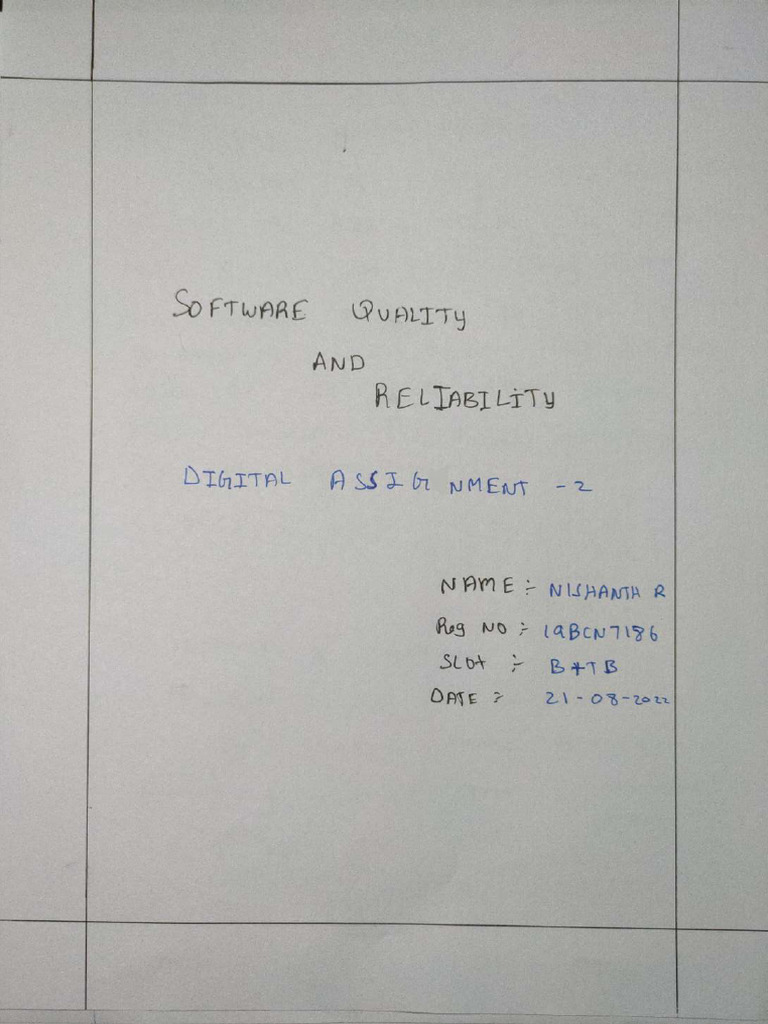 SOFTWARE QUALITY
AND
RELIABILITY
DIGITAL ASSIGNMENT - 2
NAME :- NISHANTH R
Reg NO :- 19BCN7186
SLOt :- B+TB
DATE :- 21-08-2022